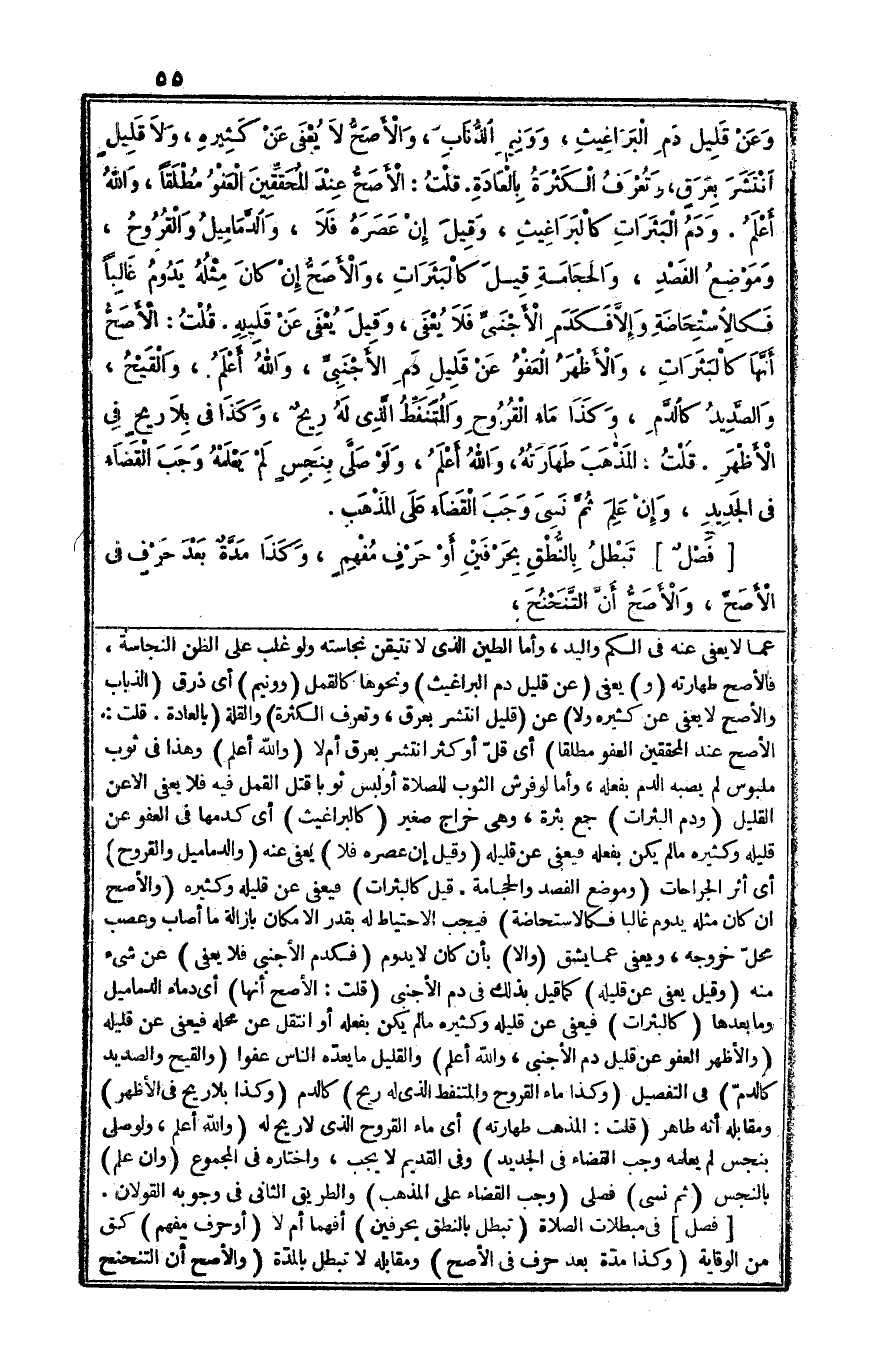 ٥٥
وَعَنْ قَلِيلِ دَمِ الْبَرَاغِيثِ ، وَوَنِيمِ الذُّبَابِ ، وَالْأَصَحُّ لاَ يُعْفَى عَنْ كَثِيرِهِ ، وَلاَ قَلِيلٍ
انْتَشَرَ بِعَرَقٍ ، وَتُعْرَفُ الْكَثْرَةُ بِالْعَادَةِ . قلْتُ : الْأَصَحُّ عِنْدَ الْمُحَقِّقِينَ الْعَفْوُ مُطْلَقًا ، وَاللهُ
أَعْلَمُ . وَدَمُ الْبَثَرَاتِ كَالْبَرَاغِيثِ ، وَقِيلَ إِنْ عَصَرَهُ فَلَا ، وَالدَّمَامِيلُ وَالْقُرُوحُ ،
وَمَوْضِعُ الْفَصْدِ ، وَالْحِجَامَةِ قِيلَ كَالْبَثَرَاتِ ، وَالْأَصَحُّ إِنْ كَانَ مِثْلُهُ يَدُومُ غَالِباً
فَكَالِاسْتِحَاضَةِ وَإِلاَّ فَكَدَمِ الْأَجْنَبِيِّ فَلَا يُعْفَى ، وَقِيلَ يُعْفَى عَنْ قَلِيلِهِ . قُلْتُ : الْأَصَحُّ
أَنَّهَا كَالْبَثَرَاتِ ، وَالْأَظْهَرُ الْعَفْوُ عَنْ قَلِيلِ دَمِ الأَجْنَبِيِّ ، وَاللهُ أَعْلَمُ ، وَالْقَيْحُ ،
وَالصَّدِيدُ كَالدَّمِ ، وَكَذَا مَاءُ الْقُرُوحِ وَالْمُتَنَفِّطُ الَّذِى لَهُ رِيحٌ ، وَكَذَا فى بِلاَ رِيحٍ فِي
الْأَظْهَرِ . قُلْتُ : المَذْهَبُ طَهَارَتُهُ ، وَاللهُ أَعْلَمُ ، وَلَوْ صَلَّى بِنَجِسٍ لَمْ يَعْلَمْهُ وَجَبَ الْقَضَاءُ
فى الْجَدِيدِ ، وَإِنْ عَلِمَ ثُمَّ نَسِىَ وَجَبَ الْقَضَاءُ عَلَى الْمَذْهَبِ .
[ فَصْلٌ ] تَبْطُلُ بِالنُّطْقِ بِحَرْفَيْنِ أَوْ حَرْفٍ مُفْهِمٍ ، وَكَذَا مَدَّةٌ بَعْدَ حَرْفٍ فى
الْأَصَحِّ ، وَالْأَصَحُّ أَنَّ التَّنَحْنُحَ ،
عما لا يعفى عنه فى الكم واليد ، وأما الطين الذى لا تتيقن نجاسته ولو غلب على الظن النجاسة ،
فالأصح طهارته (و) يعفى (عن قليل دم البراغيث) ونحوها كالقمل (وونيم) أى ذرق (الذباب
والأصح لا يعفى عن كثيره ولا) عن (قليل انتشر بعرق ، وتعرف الكثرة) والقلة (بالعادة . قلت :
الأصح عند المحققين العفو مطلقا) أى قلّ أو كثر انتشر بعرق أم لا (والله أعلم) وهذا فى ثوب
ملبوس لم يصبه الدم بفعله ، وأما لو فرش الثوب للصلاة أو لبس ثوبا قتل القمل فيه فلا يعفى الا عن
القليل (ودم البثرات) جمع بثرة ، وهى خراج صغير (كالبراغيث) أى كدمها فى العفو عن
قليله وكثيره مالم يكن بفعله فيعفى عن قليله (وقيل إن عصره فلا) يعفى عنه (والدماميل والقروح)
أى أثر الجراحات (وموضع الفصد والحجامة . قيل كالبثرات) فيعفى عن قليله وكثيره (والأصح
ان كان مثله يدوم غالبا فكالاستحاضة) فيجب الاحتياط له بقدر الامكان بازالة ما أصاب وعصب
محلّ خروجه ، ويعفى عما يشق (والا) بأن كان لا يدوم (فكدم الأجنبى فلا يعفى) عن شىء
منه (وقيل يعفى عن قليله) كما قيل بذلك فى دم الأجنبى (قلت : الأصح أنها) أى دماء الدماميل
وما بعدها (كالبثرات) فيعفى عن قليله وكثيره مالم يكن بفعله أو انتقل عن محله فيعفى عن قليله
(والأظهر العفو عن قليل دم الأجنبى ، والله أعلم) والقليل ما يعدّه الناس عفوا (والقيح والصديد
كالدمّ) فى التفصيل (وكذا ماء القروح والمتنفط الذى له ريح) كالدم (وكذا بلاريح فى الأظهر)
ومقابله أنه طاهر (قلت : المذهب طهارته) أى ماء القروح الذى لاريح له (والله أعلم ، ولو صلى
بنجس لم يعلمه وجب القضاء فى الجديد) وفى القديم لا يجب ، واختاره فى المجموع (وان علم)
بالنجس (ثم نسى) فصلى (وجب القضاء على المذهب) والطريق الثانى فى وجوبه القولان .
[ فصل ] فى مبطلات الصلاة (تبطل بالنطق بحرفين) أفهما أم لا (أو حرف مفهم) كـق
من الوقاية (وكذا مدّة بعد حرف فى الأصح) ومقابله لا تبطل بالمدّة (والأصح أن التنحنح